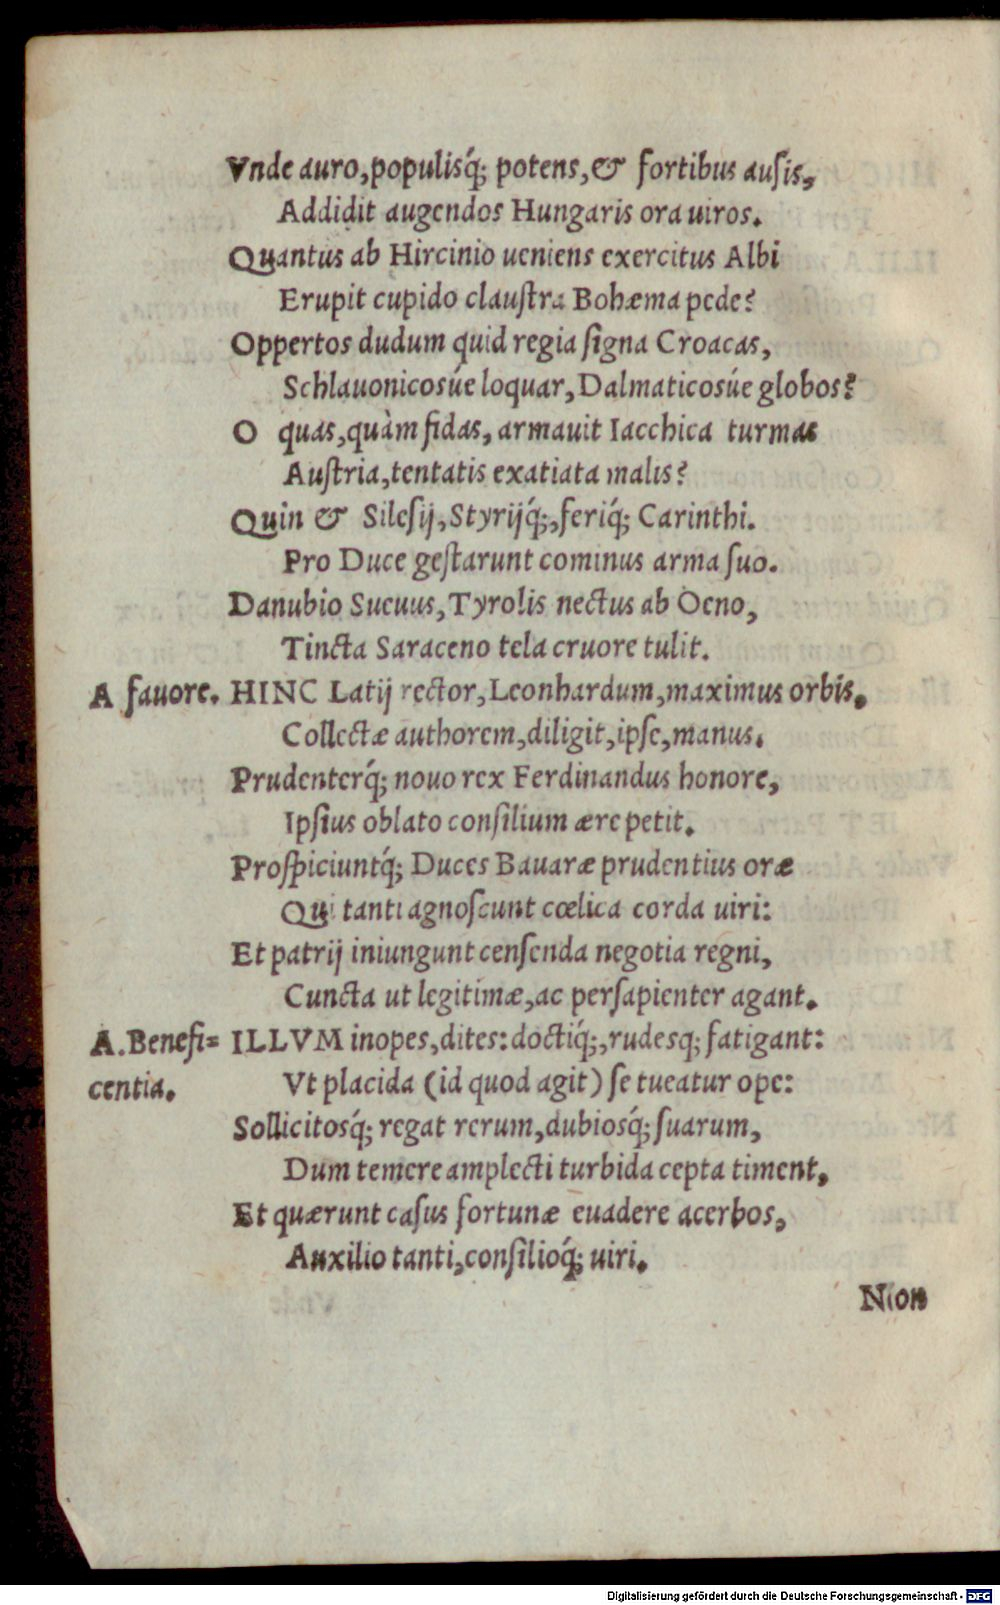 Vnde auro, populisq́; potens, & fortibus ausis,
Addidit augendos Hungaris ora uiros.
Quantus ab Hircinio ueniens exercitus Albi
Erupit cupido claustra Bohæma pede?
Oppertos dudum quid regia signa Croacas,
Schlauonicosúe loquar, Dalmaticosúe globos?
O quas, quàm fidas, armauit Iacchica turmas
Austria, tentatis exatiata malis?
Quin & Silesij, Styrijq́;, feriq́; Carinthi.
Pro Duce gestarunt cominus arma suo.
Danubio Sueuus, Tyrolis nectus ab Oeno,
Tincta Saraceno tela cruore tulit.
A fauore. HINC Latij rector, Leonhardum, maximus orbis,
Collectæ authorem, diligit, ipse, manus.
Prudenterq́; nouo rex Ferdinandus honore,
Ipsius oblato consilium ære petit.
Prospiciuntq́; Duces Bauaræ prudentius oræ
Qui tanti agnoscunt cœlica corda uiri:
Et patrij iniungunt censenda negotia regni,
Cuncta ut legitimæ, ac persapienter agant.
A. Benefi= ILLVM inopes, dites: doctiq́;, rudesq; fatigant:
centia. Vt placida (id quod agit) se tueatur ope:
Sollicitosq́; regat rerum, dubiosq́; suarum,
Dum temere amplecti turbida cepta timent,
Et quærunt casus fortunæ euadere acerbos,
Auxilio tanti, consilioq́; uiri.
Non
Digitalisierung gefördert durch die Deutsche Forschungsgemeinschaft - DFG